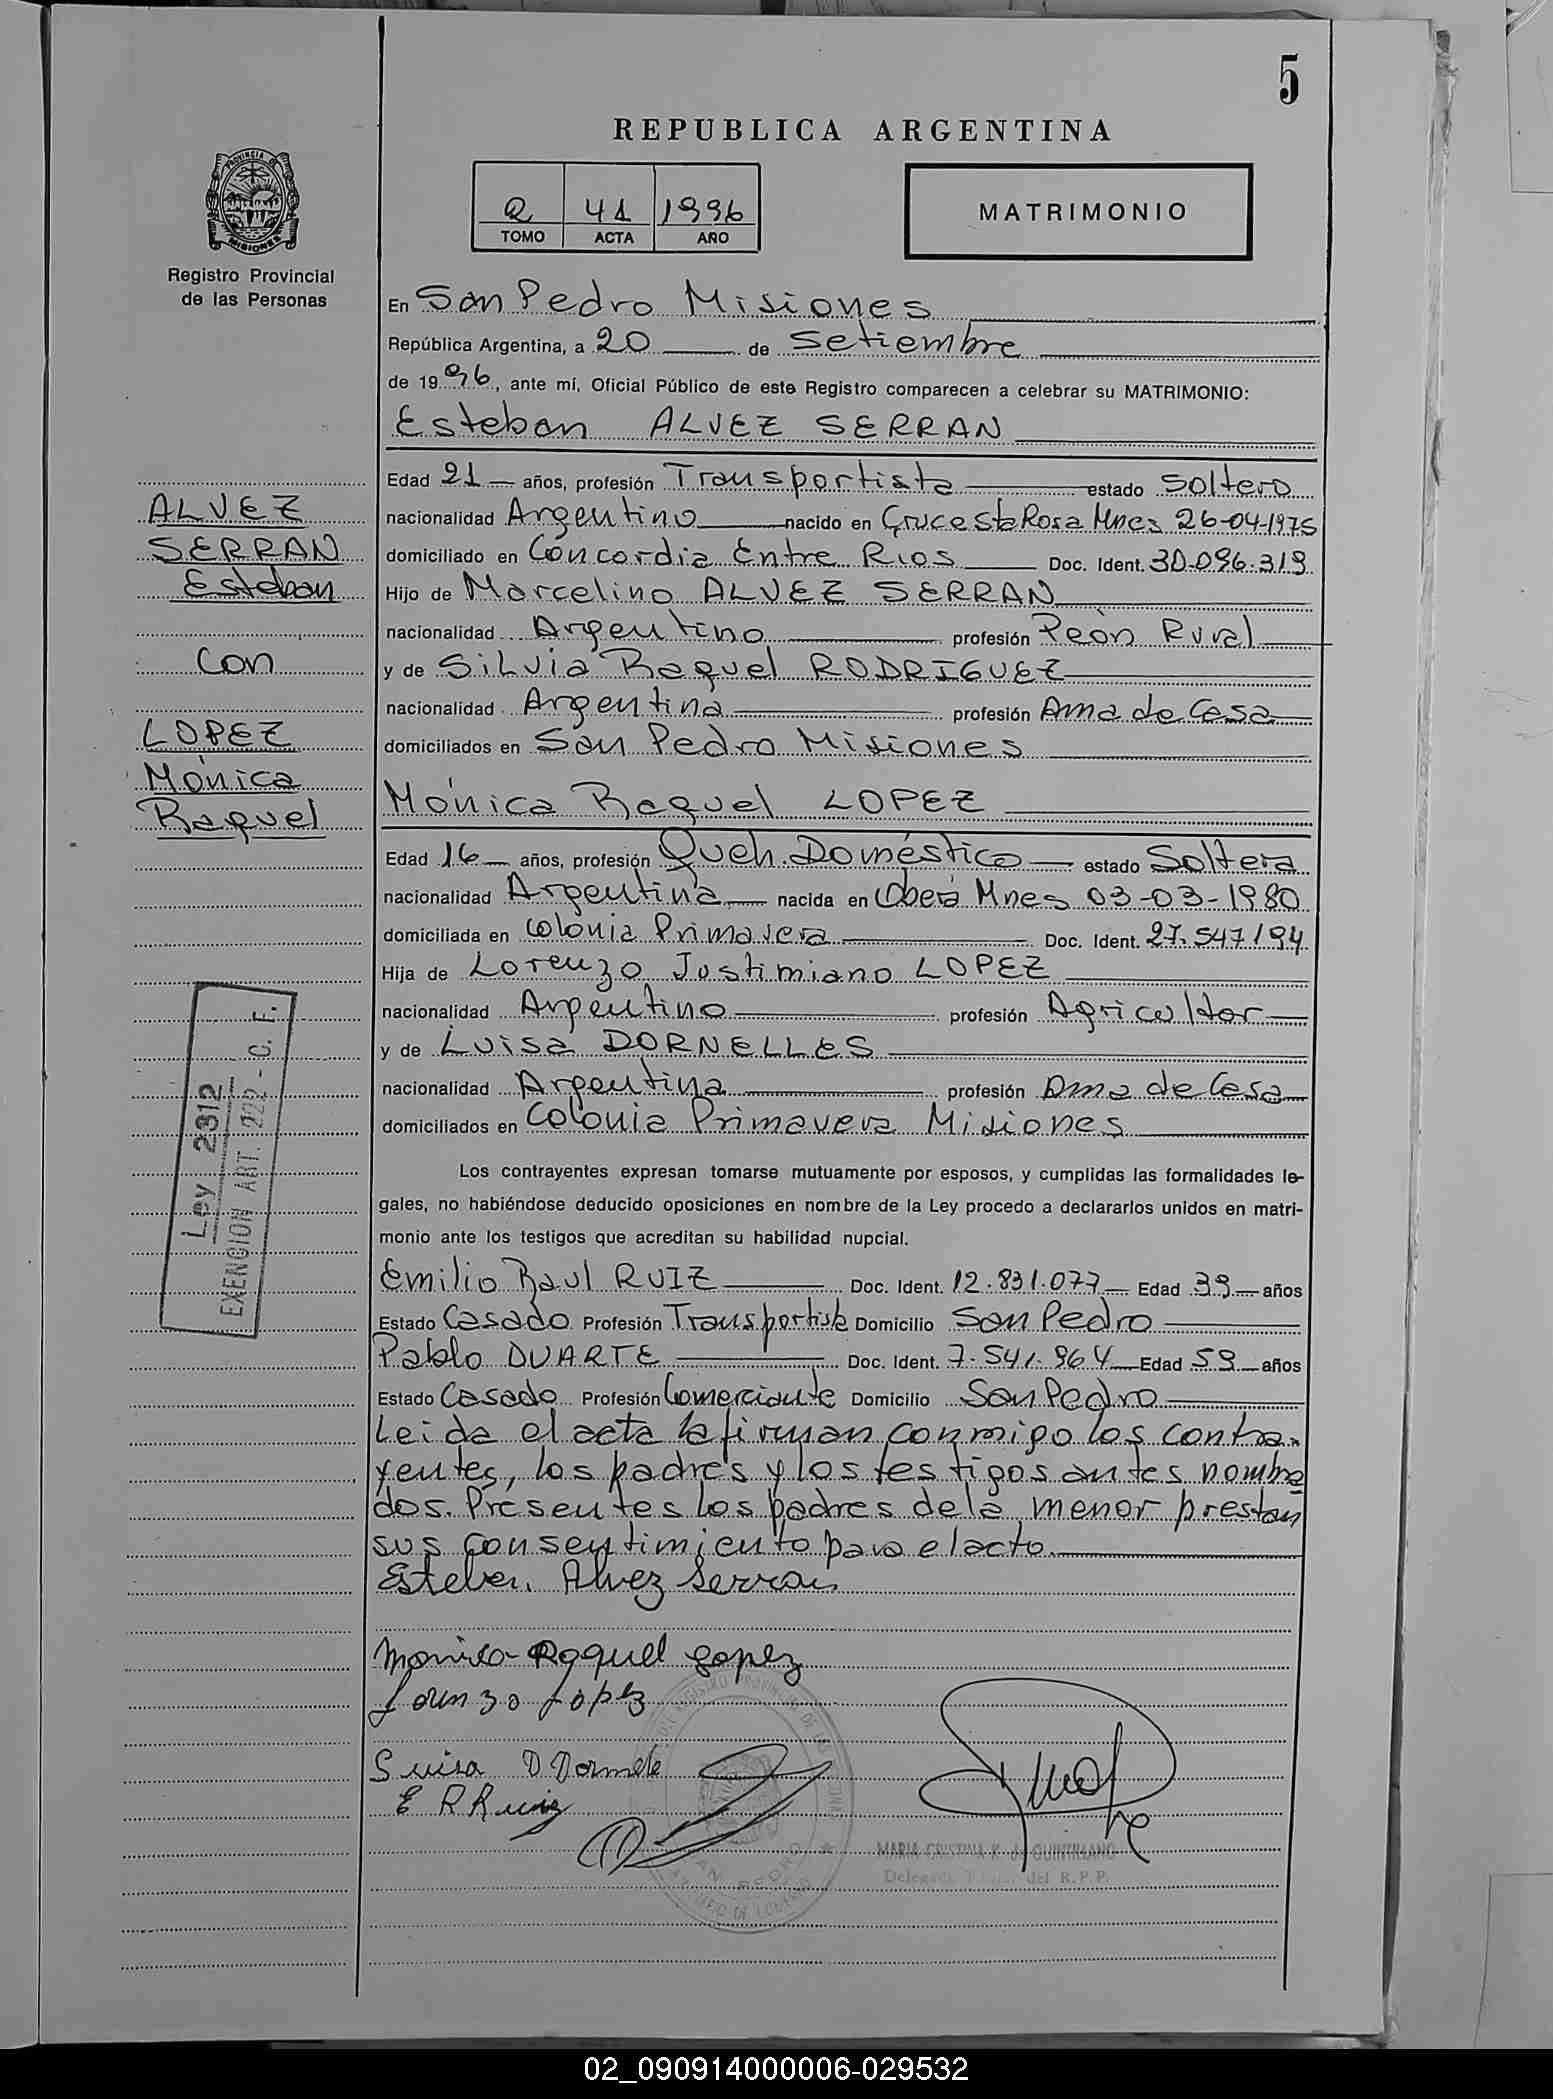 5
REPUBLICA ARGENTINA
PROVINCIA DE
MISIONES
Registro Provincial
de las Personas
2 41 1996
TOMO ACTA AÑO
MATRIMONIO
En San Pedro Misiones
República Argentina, a 20 de Setiembre
de 1996, ante mí, Oficial Público de este Registro comparecen a celebrar su MATRIMONIO:
Esteban ALVEZ SERRAN
Edad 21 años, profesión Transportista estado Soltero
nacionalidad Argentino nacido en Cruce Sta Rosa Mnes 26-04-1975
domiciliado en Concordia Entre Rios Doc. Ident. 30.096.319
Hijo de Marcelino ALVEZ SERRAN
nacionalidad Argentino profesión Peón Rural
y de Silvia Raquel RODRIGUEZ
nacionalidad Argentina profesión Ama de Casa
domiciliados en San Pedro Misiones
Mónica Raquel LOPEZ
Edad 16 años, profesión Queh. Doméstico estado Soltera
nacionalidad Argentina nacida en Oberá Mnes 03-03-1980
domiciliada en Colonia Primavera Doc. Ident. 27.547194
Hija de Lorenzo Justimiano LOPEZ
nacionalidad Argentino profesión Agricultor
y de Luisa DORNELLES
nacionalidad Argentina profesión Ama de Casa
domiciliados en Colonia Primavera Misiones
Los contrayentes expresan tomarse mutuamente por esposos, y cumplidas las formalidades le-
gales, no habiéndose deducido oposiciones en nombre de la Ley procedo a declararlos unidos en matri-
monio ante los testigos que acreditan su habilidad nupcial.
Emilio Raul RUIZ Doc. Ident. 12.831.077 Edad 39 años
Estado Casado Profesión Transportista Domicilio San Pedro
Pablo DUARTE Doc. Ident. 7.541.964 Edad 59 años
Estado Casado Profesión Comerciante Domicilio San Pedro
Leida el acta la firman conmigo los contra-
yentes, los padres y los testigos antes nombra
dos. Presentes los padres de la menor prestan
sus consentimiento para el acto.
Esteban Alvez Serran
Monica Raquel Lopez
Lorenzo Lopez
Luisa D Dornele
E R Ruiz
MARIA CRISTINA K. de QUINTILIANO
del R.P.P.
SAN PEDRO
ALVEZ
SERRAN
Esteban
Con
LOPEZ
Mónica
Raquel
Ley 2312
EXENCION ART. 222 - C. F.
02_090914000006-029532